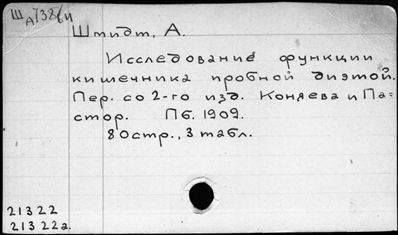 Шмидт, А.
Исследование функции
кишечника пробной диэтой.
Пер. со 2-го изд. Коняева и Па=
стор. Пб. 1909.
80 стр., 3 табл.
21322
21322а.